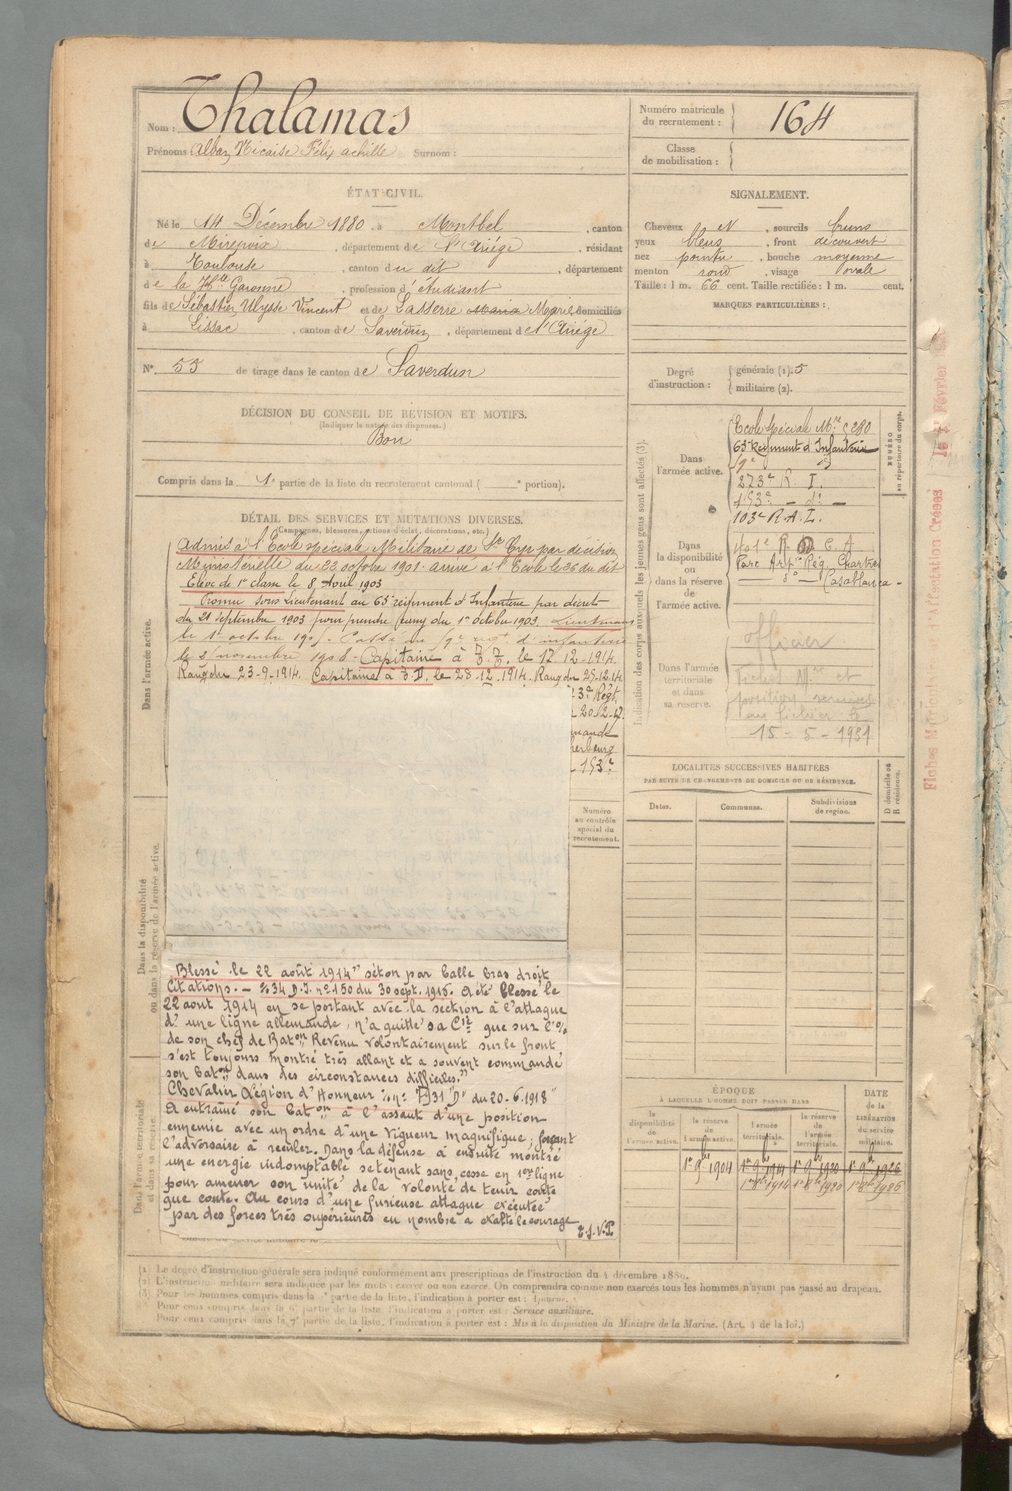 Nom : Thalamas
Prénoms Alban Nicaise Félix achille Surnom :
Numéro matricule du recrutement : 164
Classe de mobilisation :
ÉTAT CIVIL.
Né le 14 Décembre 1880, à Montbel, canton
de Mirepoix, département de l'Ariége, résidant
à Toulouse, canton du dit, département
de la Hte Garonne, profession d'étudiant
fils de Sébastien Ulysse Vincent et de Lasserre Maria Marie domiciliés
à Lissac, canton de Saverdun, département de l'Ariége
N°. 55 de tirage dans le canton de Saverdun
DÉCISION DU CONSEIL DE RÉVISION ET MOTIFS.
(Indiquer la nature des dispenses.)
Bon
Compris dans la 1e partie de la liste du recrutement cantonal ( e portion).
SIGNALEMENT.
Cheveux et, sourcils bruns
yeux bleus, front découvert
nez pointu, bouche moyenne
menton rond, visage ovale
Taille : 1 m. 66 cent. Taille rectifiée : 1 m. cent.
MARQUES PARTICULIÈRES :
Degré d'instruction :
générale (1). 5
militaire (2).
DÉTAIL DES SERVICES ET MUTATIONS DIVERSES.
(Campagnes, blessures, actions d'éclat, décorations, etc.)
Dans l'armée active.
Admis à l'Ecole spéciale Militaire de St Cyr par décision
Ministérielle du 23 octobre 1901. arrivé à l'Ecole le 26 du dit
Elève de 1re classe le 8 Avril 1903
Promu sous Lieutenant au 63e régiment d'Infanterie par décret
du 21 septembre 1903 pour prendre rang du 1er octobre 1903. Lieutenant
le 1er octobre 190 . Passé au 9e regt d'infanterie
le 2 novembre 1908. Capitaine à T.T. le 17.12.1914.
Rang du 23-9-1914. Capitaine à T.D. le 28.12.1914. Rang du 25.12.14
3e Régt.
20.12.17.
mande
herbourg
153e
Numéro au contrôle spécial du recrutement.
Dans la disponibilité ou dans la réserve de l'armée active.
Blessé le 22 août 1914 " séton par balle bras droit
Citations. — 34 D.I. n° 150 du 30 sept. 1915. A été blessé le
22 aout 1914 en se portant avec la section à l'attaque
d'une ligne allemande, n'a quitté sa Cie que sur l'o/
de son chef de Baton. Revenu volontairement sur le front
s'est toujours montré très allant et a souvent commandé
son baton dans des circonstances difficiles."
Chevalier Légion d'Honneur "D" du 20-6-1918
A entraîné son baton à l'assaut d'une position
ennemie avec un ordre d'une vigueur magnifique, forçant
l'adversaire à reculer. Dans la défense a ensuite montré
une energie indomptable se tenant sans cesse en 1ere ligne
pour amener son unité de la volonté de tenir coute
que coute. Au cours d'une furieuse attaque exécutée
par des forces très supérieures en nombre a exalté le courage
T.S.V.P.
Dans l'armée territoriale et dans sa réserve.
Indication des corps auxquels les jeunes gens sont affectés (3).
NUMÉRO au répertoire du corps.
Dans l'armée active.
Ecole Spéciale Mre
63e Régiment d'Infanterie
9e do
273e R. I.
153e — do —
103e R.A.L.
Dans la disponibilité ou dans la réserve de l'armée active.
R. C. A.
Parc Arp. Rég. Chartres
— do — Casablanca -
Dans l'armée territoriale et dans sa réserve.
officier
Fichet Mle et
position
au fichier
15-5-1931
LOCALITÉS SUCCESSIVES HABITÉES
PAR SUITE DE CHANGEMENTS DE DOMICILE OU DE RÉSIDENCE.
Dates. Communes. Subdivisions de région. D domicile ou R résidence.
ÉPOQUE
À LAQUELLE L'HOMME DOIT PASSER DANS
DATE de la LIBÉRATION du service militaire.
la disponibilité de l'armée active. la réserve de l'armée active. l'armée territoriale. la réserve de l'armée territoriale.
1er 9bre 1904 1er 9bre 1914 1er 9bre 1920 1er 9bre 1926
1er 8bre 1914 1er 8bre 1920 1er 8bre 1926
Fiches Matricule d'Affectation Créées le Février
(1) Le degré d'instruction générale sera indiqué conformément aux prescriptions de l'instruction du 4 décembre 1889.
(2) L'instruction militaire sera indiquée par les mots : exercé ou non exercé. On comprendra comme non exercés tous les hommes n'ayant pas passé au drapeau.
(3) Pour les hommes compris dans la partie de la liste, l'indication à porter est :
Pour ceux compris dans la 6e partie de la liste, l'indication à porter est : Service auxiliaire.
Pour ceux compris dans la 7e partie de la liste, l'indication à porter est : Mis à la disposition du Ministre de la Marine. (Art. 4 de la loi.)